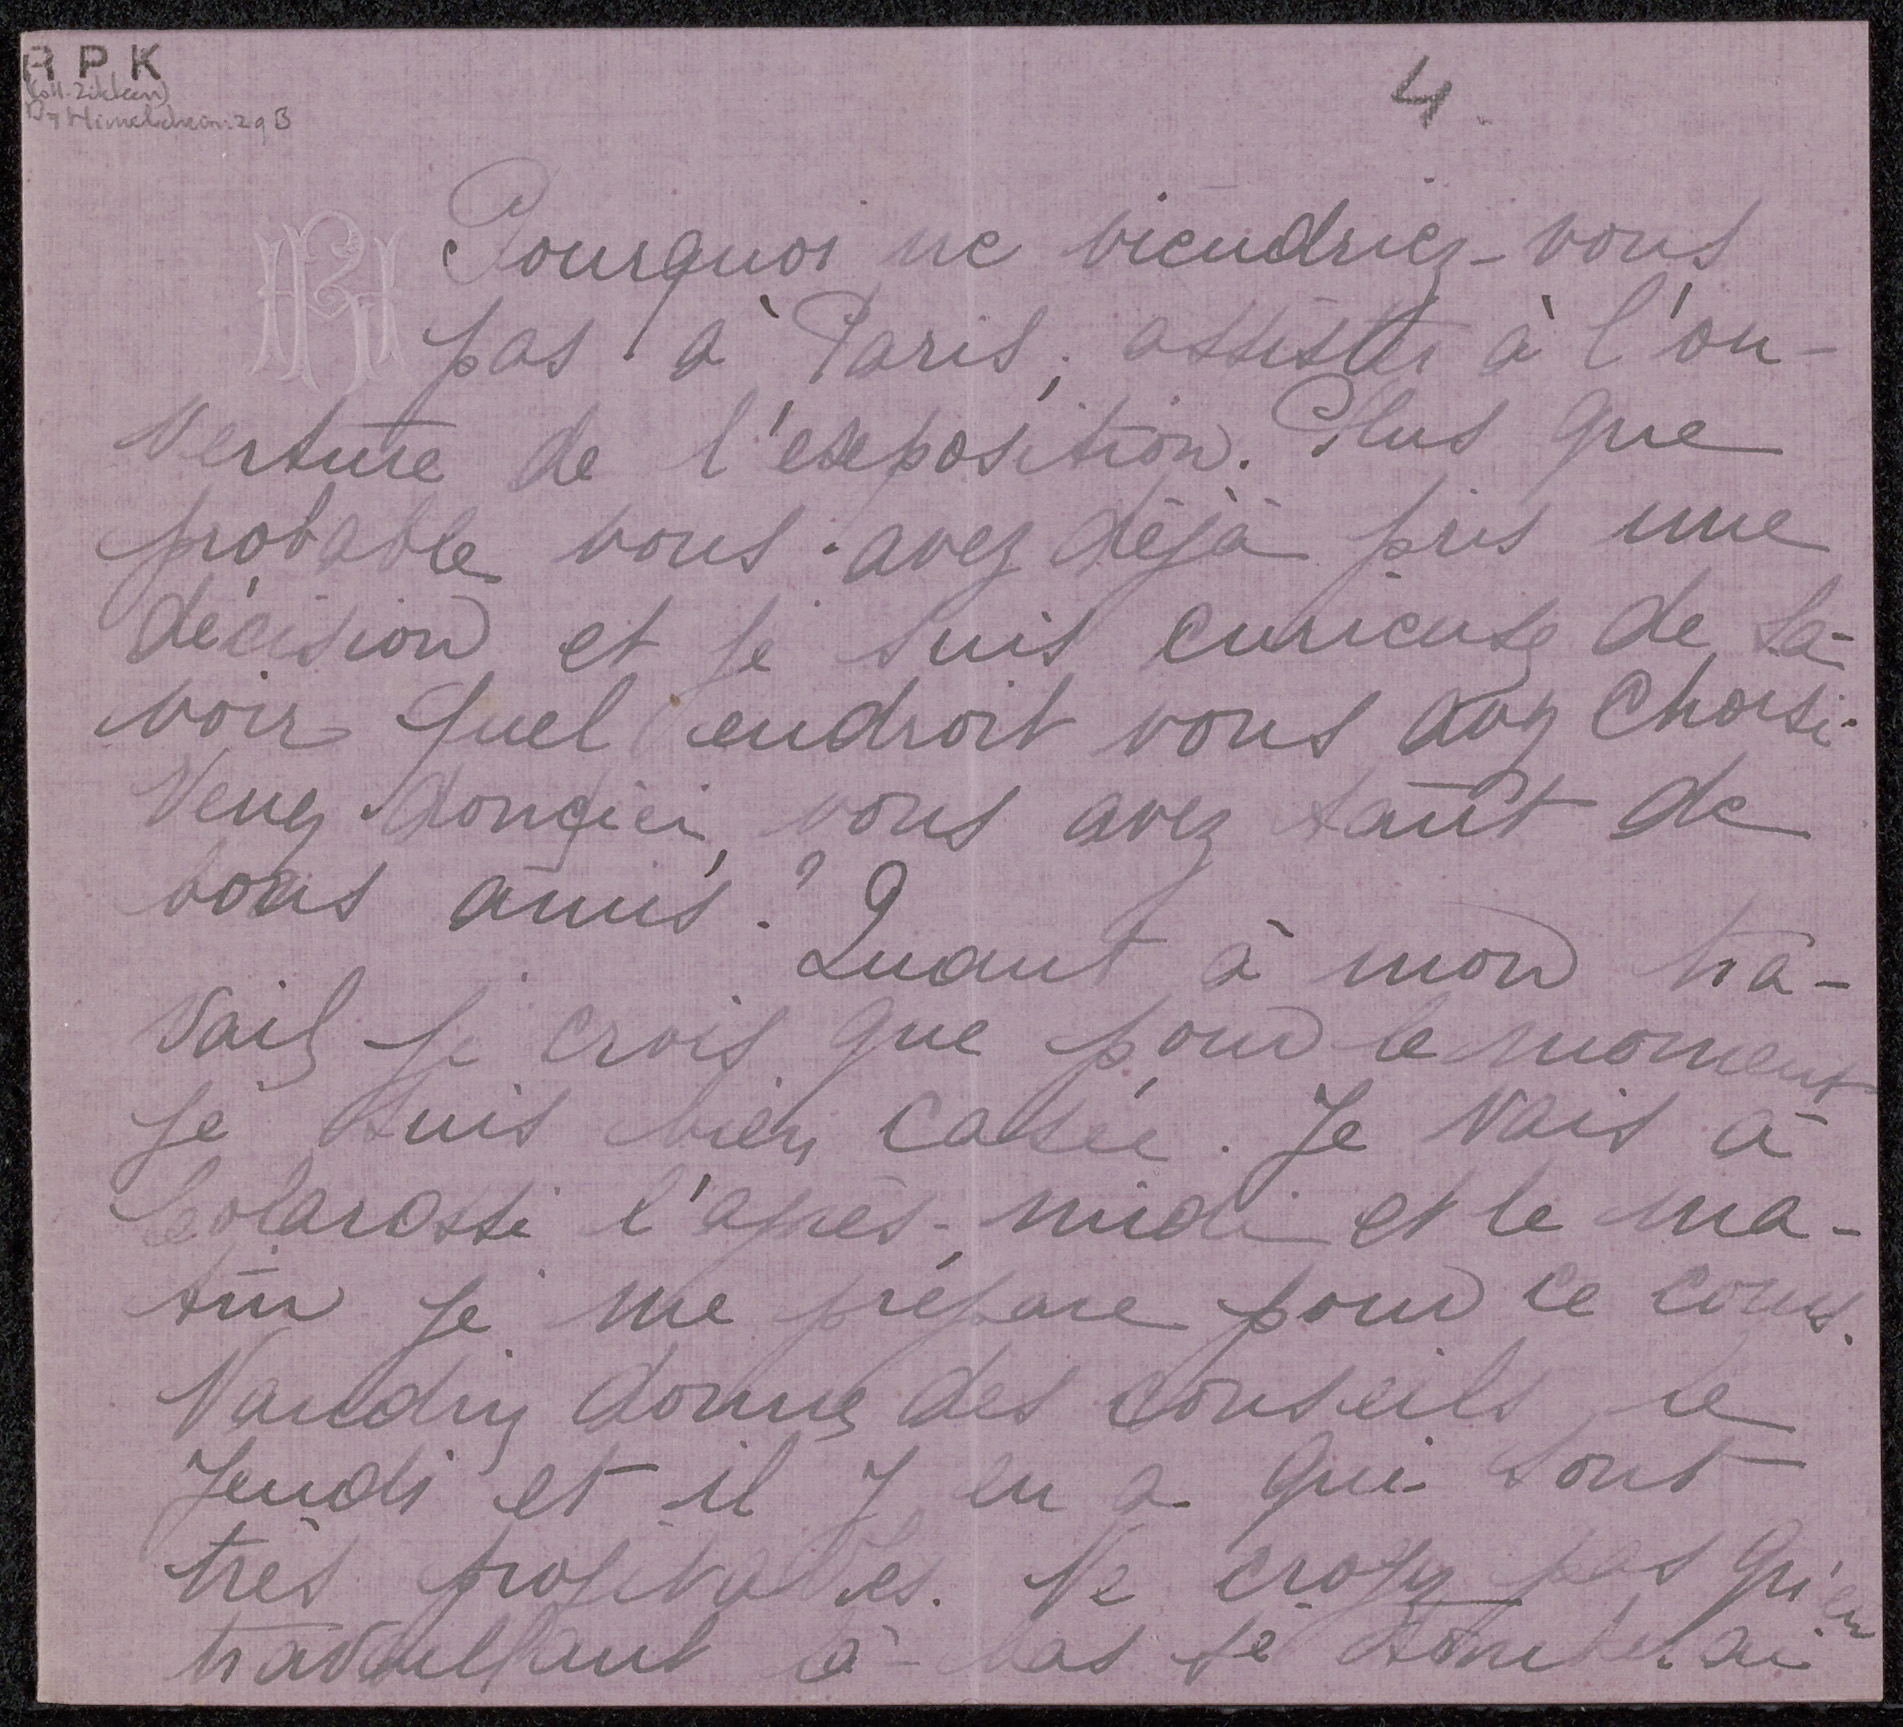 R P K
(Coll. Zilcken)
4.
Pourquoi ne viendriez-vous
pas à Paris, assister à l'ou-
verture de l'exposition. Plus que
probable vous avez déjà pris une
décision et je suis curieuse de sa-
voir quel endroit vous avez choisi.
Venez donc ici, vous avez tant de
bons amis?
Quant à mon tra-
vail je crois que pour le moment
je suis bien casée. Je vais à
Colarossi l'après-midi et le ma-
tin je me prépare pour ce cours.
Naudin donne des conseils le
Jeudi et il y en a qui sont
très profitables. Ne croyez pas qu'en
travaillant là-bas je tomberai